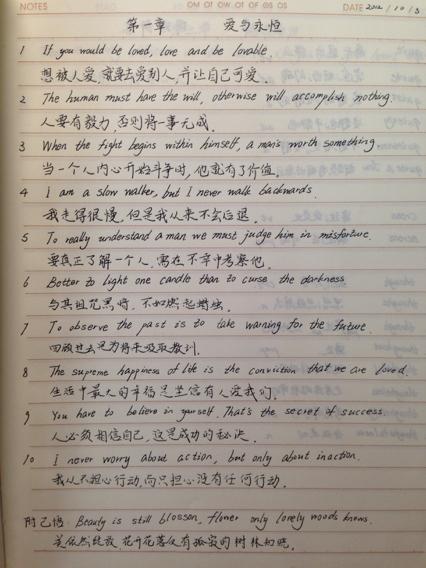 NOTES
DATE 2012/10/3
第一章 爱与永恒
1 If you would be loved, love and be lovable.
想被人爱,就要去爱别人,并让自己可爱.
2 The human must have the will, otherwise will accomplish nothing.
人要有毅力,否则将一事无成.
3 When the fight begins within himself, a man's worth something.
当一个人内心开始斗争时,他就有了价值.
4 I am a slow walker, but I never walk backwards.
我走得很慢,但是我从来不会后退.
5 To really understand a man we must judge him in misfortune.
要真正了解一个人,需在不幸中考察他.
6 Better to light one candle than to curse the darkness
与其诅咒黑暗,不如燃起蜡烛.
7 To observe the past is to take warning for the future.
回顾过去是为将来吸取教训.
8 The supreme happiness of life is the conviction that we are loved.
生活中最大的幸福是坚信有人爱我们.
9 You have to believe in yourself. That's the secret of success.
人必须相信自己,这是成功的秘诀.
10 I never worry about action, but only about inaction.
我从不担心行动,而只担心没有任何行动.
附己悟: Beauty is still blosson, flower only lonely woods knows.
美依然绽放,花开花落仅有孤寂的树林知晓.